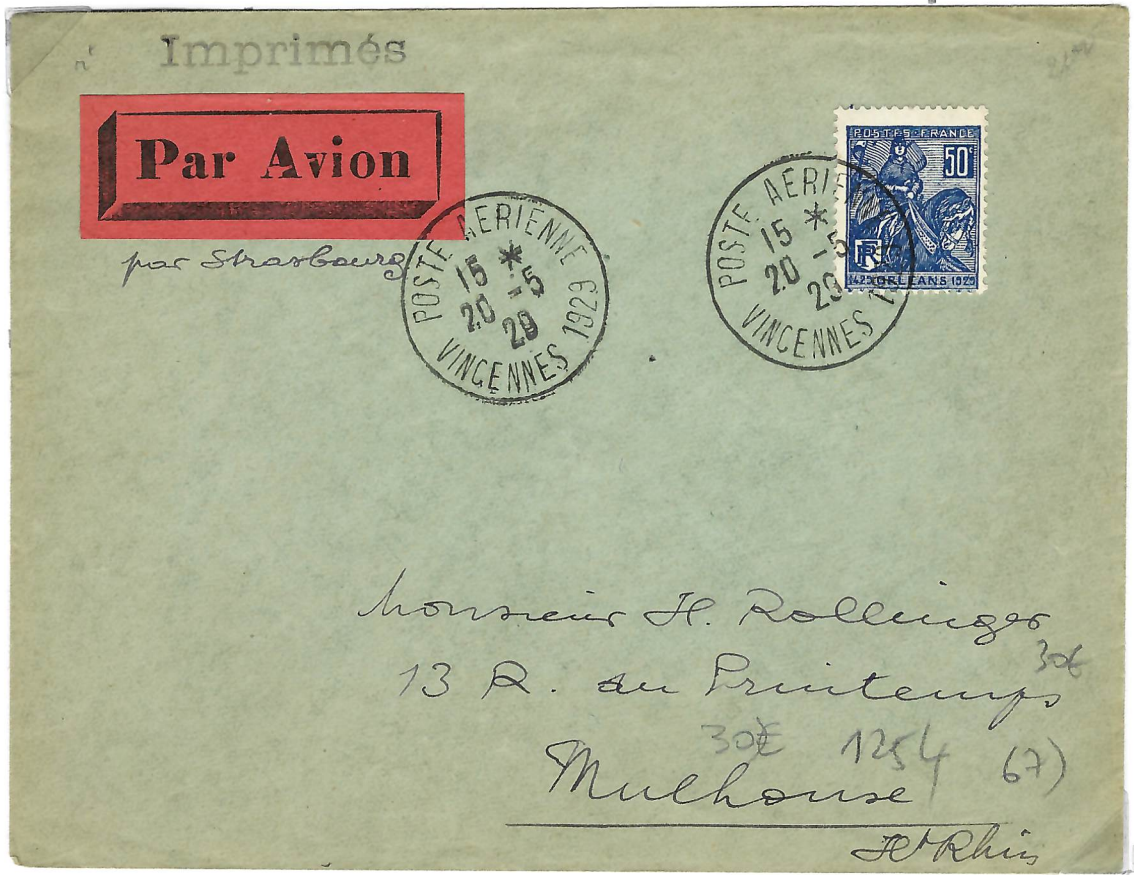 Imprimés
Par Avion
par Strasbourg
POSTE AERIENNE
15 *
20 -5
29
VINCENNES 1929
POSTE AERIE
15 *
20 -5
29
VINCENNES 19
POSTES-FRANCE
50c
RF
1429 ORLEANS 1929
Monsieur H. Rollinger
30€
13 R. du Printemps
30€ 1254 67)
Mulhouse
Ht Rhin